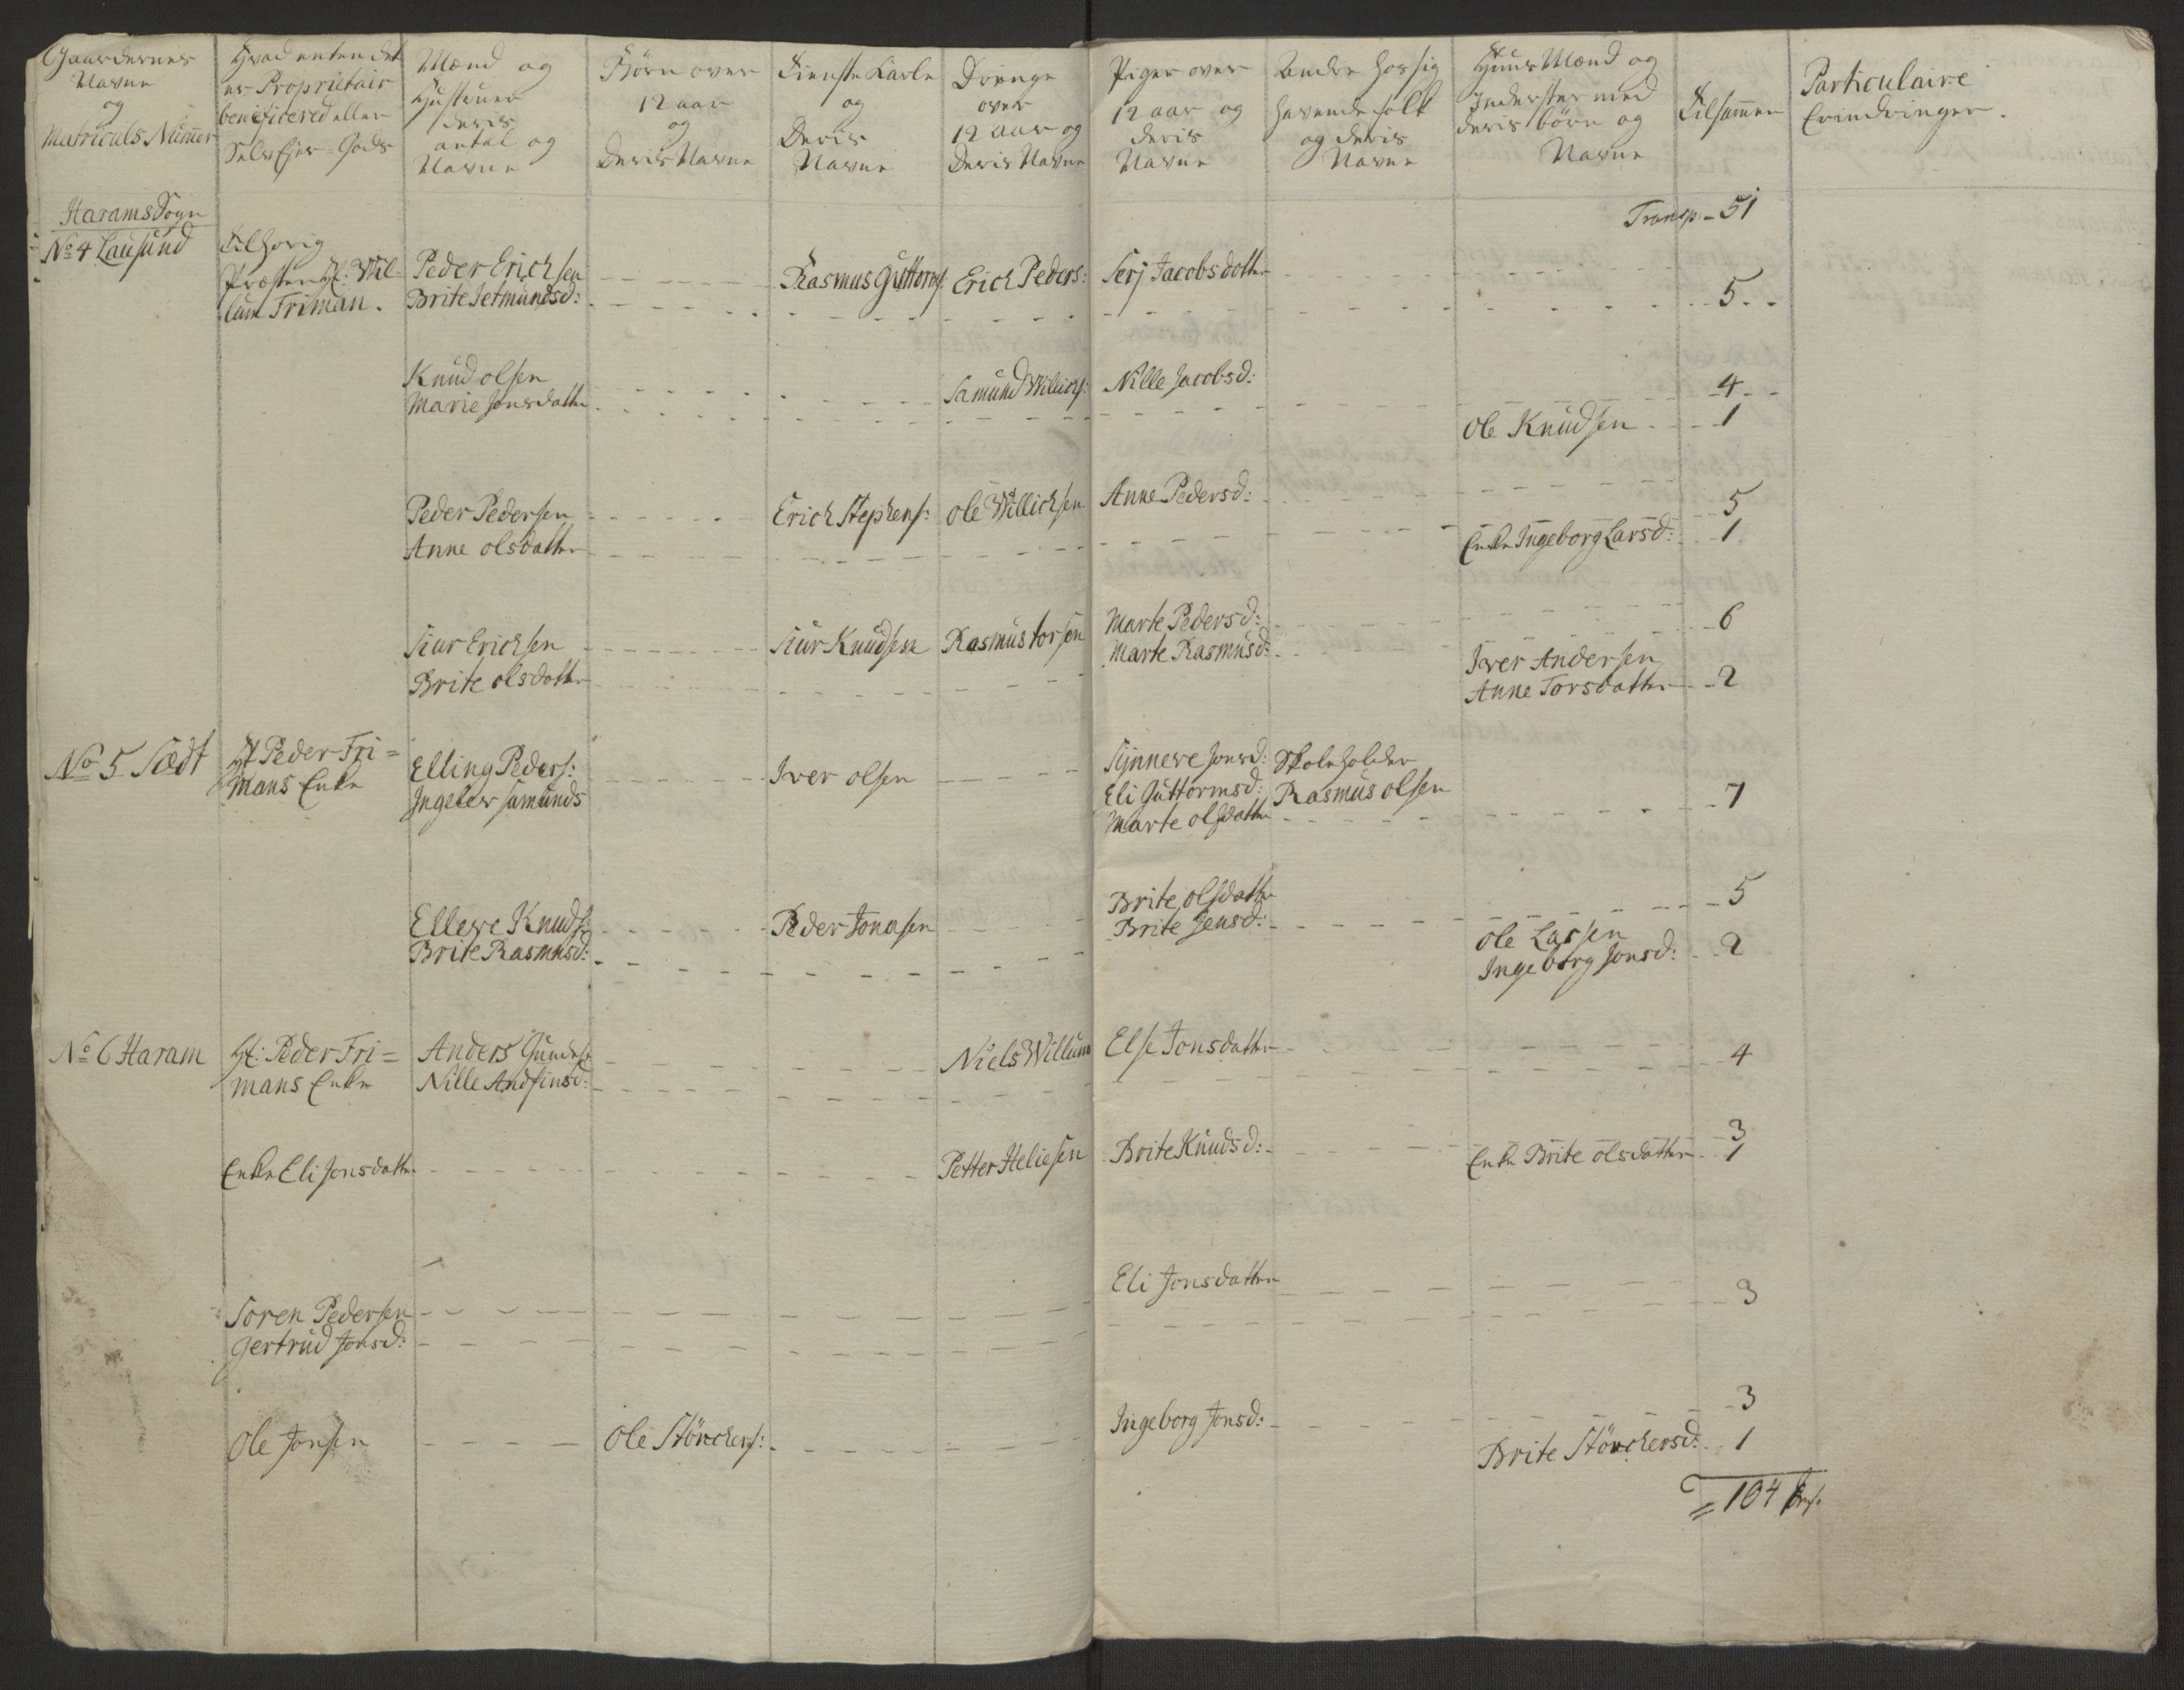 Gaardernes
Navne
og
Matriculs Nummer
Hvad enten det
er Proprietair
beneficered eller
Selv Ejer-Gods
Mænd og
Hustruer
deris
antal og
Navne
Börn over
12 aar
og
Deris Navne
Tienste Karle
og
Deris
Navne
Drenge
over
12 aar og
Deris Navne
Piger over
12 aar og
deris
Navne
Andre hos sig
havende folk
og deris
Navne
Huus Mænd og
Inderster med
deris börn og
Navne
Tilsammen
Particulaire
Erindringer.
Harams Sogn
Transp - 51
No 4 Lausund
Tilhörig
Præsten Hr: Wil-
lum Friman.
Peder Erichsen
Brite Jetmundsd:
Rasmus Guttorms:
Erich Peders:
Serj Jacobsdotter
5
Knud olsen
Marie Jonsdatter
Samund Willichs:
Nille Jacobsd:
4
Ole Knudsen 1
Peder Pedersen
Anne olsdatter
Erich Stephens:
Ole Willichsen
Anne Pedersd:
5
Enke Ingeborg Larsd: 1
Siur Erichsen
Brite olsdatter
Siur Knudsen
Rasmus torsen
Marte Pedersd:
Marte Rasmusd:
6
Iver Andersen
Anne Torsdatter 2
No 5 Sædt
Hr Peder Fri=
mans Enke
Elling Peders:
Ingeber Samunds
Iver olsen
Synneve Jonsd:
Eli Guttormsd:
Marte olsdatter
Skoleholder
Rasmus olsen
7
Elleve Knuds:
Brite Rasmusd:
Peder Jonasen
Brite olsdatter
Brite Jensd:
5
Ole Larsen
Ingeborg Jonsd: 2
No 6 Haram
Hr: Peder Fri=
mans Enke
Anders Gunders:
Nille Andfinsd:
Niels Willum
Else Jonsdatter
4
Enke Eli Jonsdatter
Petter Heliesen
Brite Knudsd:
3
Enke Brite olsdatter 1
Soren Pedersen
Gertrud Jonsd:
Eli Jonsdatter
3
Ole Jonsen
Ole Störchers:
Ingeborg Jonsd:
3
Brite Störchersd: 1
= 104